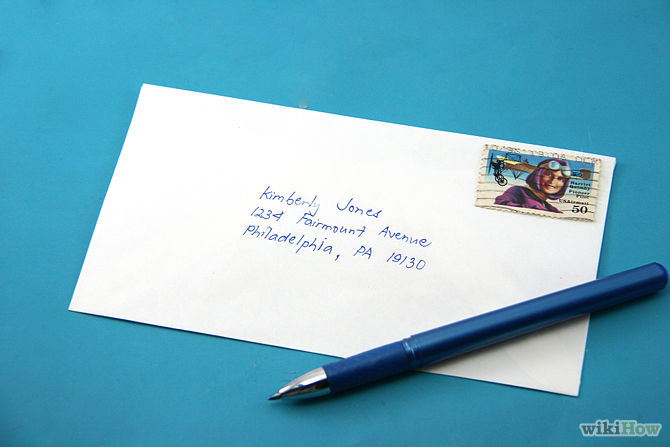 Harriet
Quimby
Pioneer
Pilot
USAirmail
50
Kimberly Jones
1234 Fairmount Avenue
Philadelphia, PA 19130
wikiHow